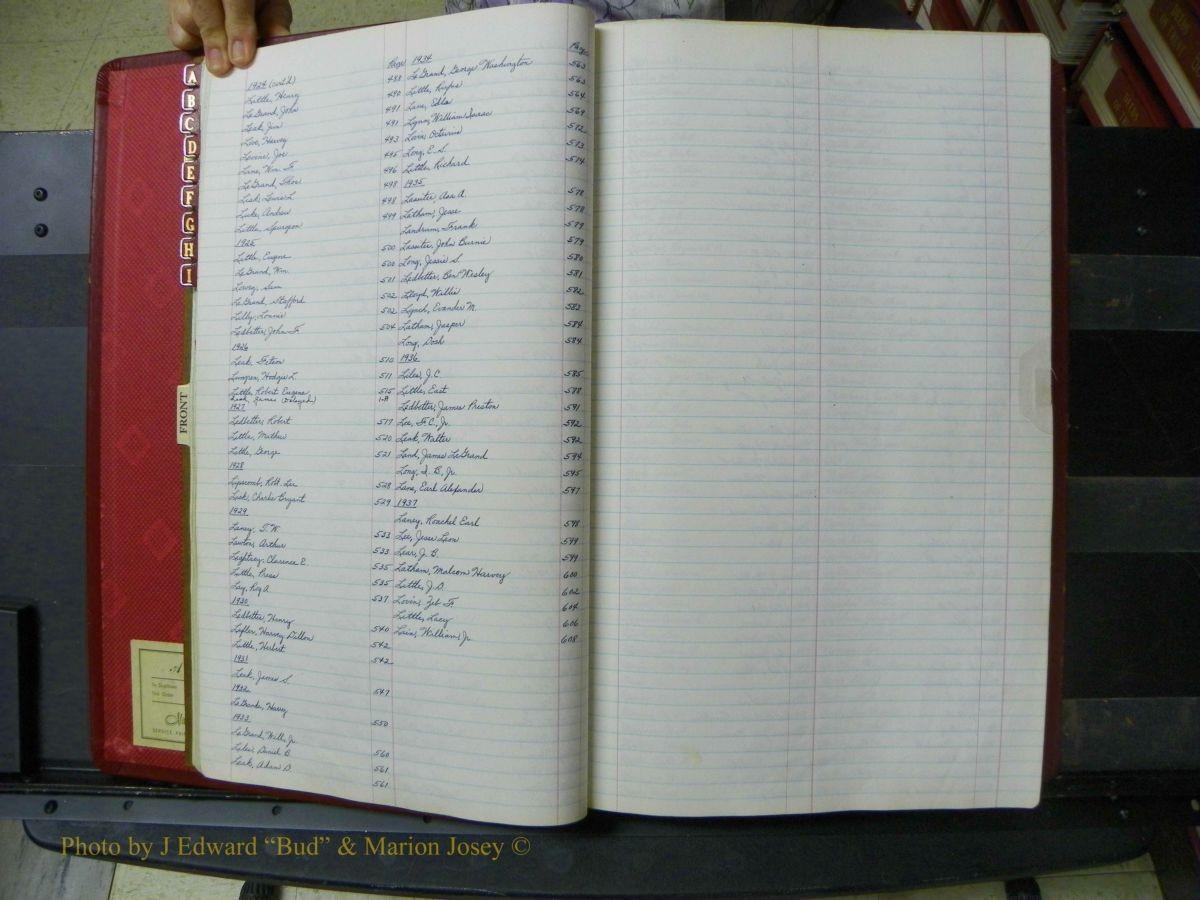 A
B
C
D
E
F
G
H
I
FRONT
1924 (cont'd) Page
Little, Henry 488
LeGrand, John 490
Leak, Jim 491
Love, Harvey 491
Levine, Joe 493
Lane, Wm. F. 495
LeGrand, Thos 496
Lisk, Lewis L. 498
Luke, Andrew 498
Little, Spurgeon 499
1925
Little, Eugene 500
LeGrand, Wm. 500
Lowry, Sam 501
LeGrand, Stafford 502
Lilly, Lonnie 502
Ledbetter, John F. 504
1926
Leak, 510
Lovgren, Hodges L. 511
Little, Robert Eugene 515
Leak, James (Delayed) 1-A
1927
Ledbetter, Robert 517
Little, Mathew 520
Little, George 521
1928
Lipscomb, Robt. Lee 528
Lisk, Charles Bryant 529
1929
Laney, T. W. 533
Lawton, Arthur 533
Clarence E. 535
Little, Press 535
Lay, Roy A. 537
1930
Ledbetter, Henry 540
Lefler, Harvey Dillon 542
Little, Herbert 542
1931
Leak, James S. 547
1932
LeGrande, Harvey 550
1933
LeGrand, Will, Jr. 560
Liles, Daniel B. 561
Leak, Adam D. 561
1934 Page
LeGrand, George Washington 563
Little, Rufus 563
Lane, Edla 564
Lynn, William Isaac 569
Lovin, Octavius 572
Long, E. S. 573
Little, Richard 574
1935
Lassiter, Asa A. 578
Latham, Jesse 578
Landrum, Frank 579
Lassiter, John Burnie 579
Long, Jessie S. 580
Ledbetter, Ben Wesley 581
Lloyd, Willie 582
Lynch, Evander M. 583
Latham, Jasper 584
Long, Dock 584
1936
Liles, J. C. 585
Little, East 588
Ledbetter, James Preston 591
Lee, F. C., Jr. 592
Leak, Walter 592
Land, James LeGrand 594
Long, I. B., Jr. 595
Lane, Earl Alexander 597
1937
Laney, Roachel Earl 598
Lee, Jesse Leon 599
Lear, J. B. 599
Latham, Malcom Harvey 600
Little, J. D. 602
Lovin, Zeb F. 604
Little, Lacy 606
William, Jr. 608
Photo by J Edward “Bud” & Marion Josey ©